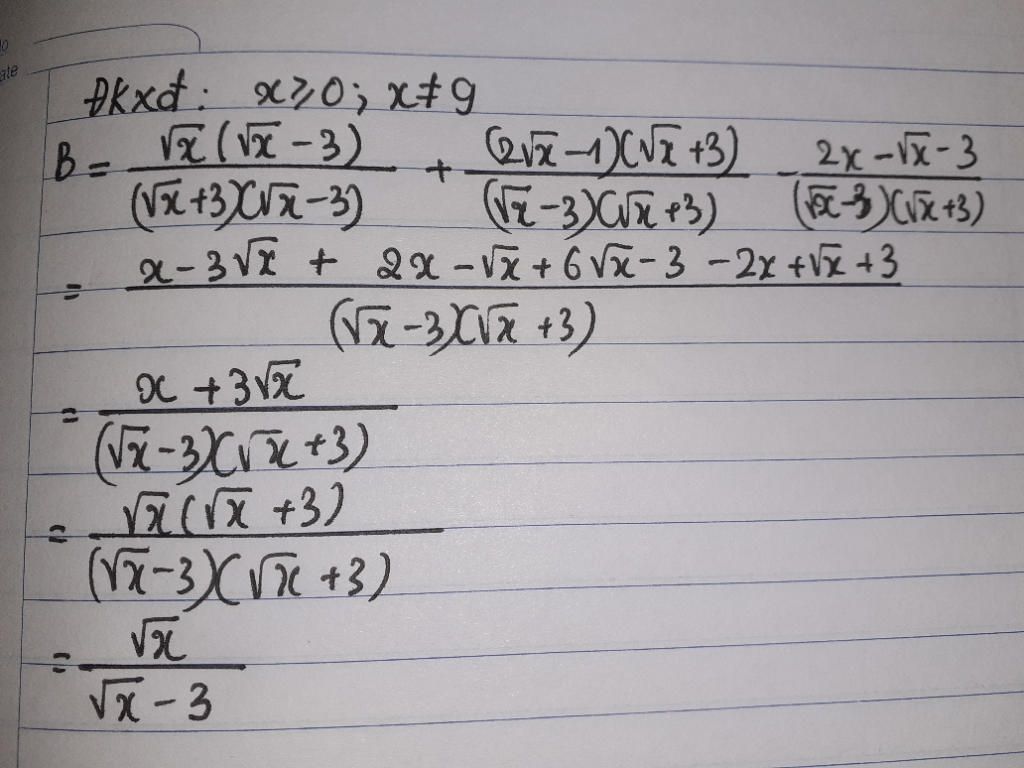 ate
ĐKXĐ: x ≥ 0; x ≠ 9
B = √x(√x - 3) / (√x+3)(√x-3) + (2√x-1)(√x+3) / (√x-3)(√x+3) - 2x-√x-3 / (√x-3)(√x+3)
= x-3√x + 2x-√x+6√x-3-2x+√x+3 / (√x-3)(√x+3)
= x+3√x / (√x-3)(√x+3)
= √x(√x+3) / (√x-3)(√x+3)
= √x / √x-3